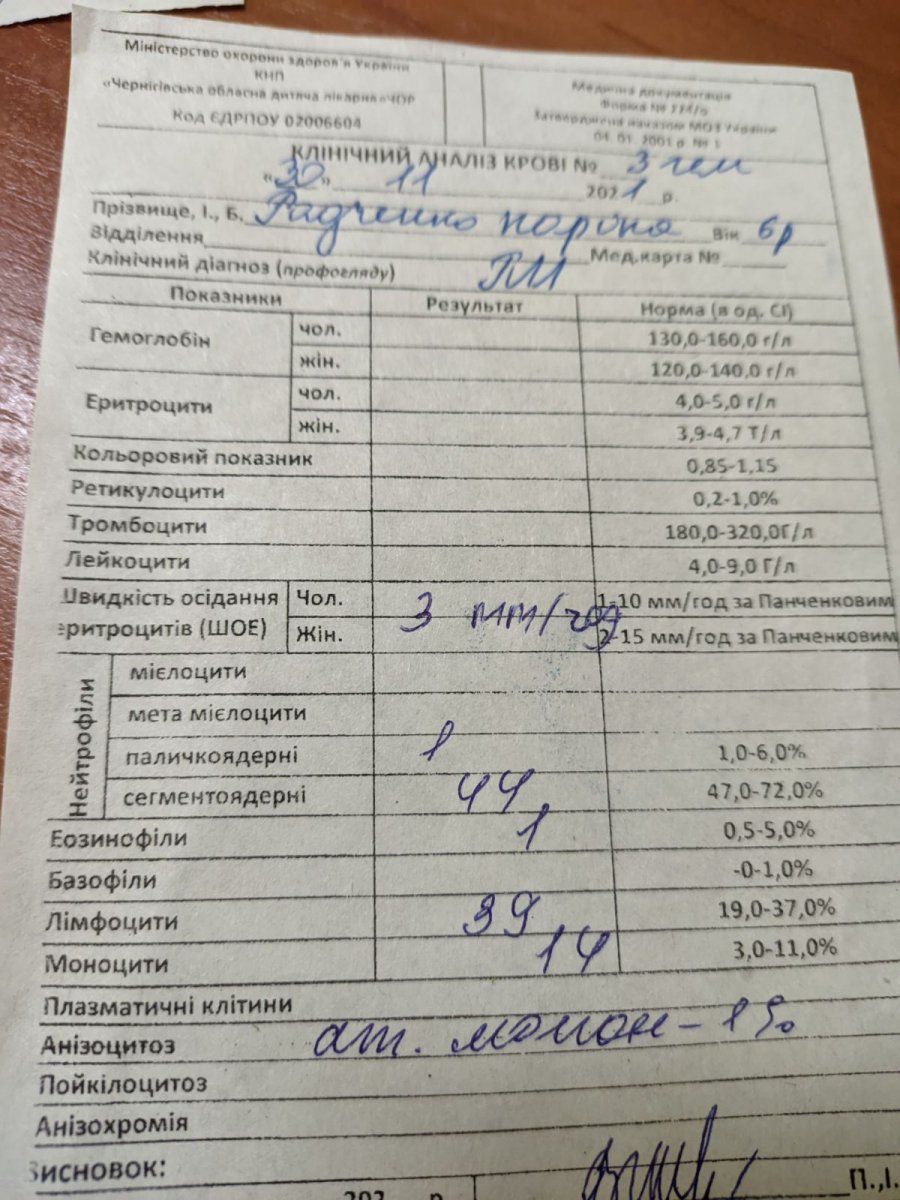 Міністерство охорони здоров'я України
КНП
«Чернігівська обласна дитяча лікарня»ЧОР
Код ЄДРПОУ 02006604
Медична документація
Форма № 224/о
Затверджена наказом МОЗ України
04. 01. 2001 р. № 1
КЛІНІЧНИЙ АНАЛІЗ КРОВІ № 3 гем
«30» 11 2021 р.
Прізвище, І., Б. Радченко Вік 6р
Відділення Мед.карта №
Клінічний діагноз (профогляду)
Показники Результат Норма (в од. СІ)
Гемоглобін чол. 130,0-160,0 г/л
жін. 120,0-140,0 г/л
Еритроцити чол. 4,0-5,0 г/л
жін. 3,9-4,7 Т/л
Кольоровий показник 0,85-1,15
Ретикулоцити 0,2-1,0%
Тромбоцити 180,0-320,0Г/л
Лейкоцити 4,0-9,0 Г/л
Швидкість осідання Чол. 3 мм/год 1-10 мм/год за Панченковим
еритроцитів (ШОЕ) Жін. 2-15 мм/год за Панченковим
Нейтрофіли
мієлоцити
мета мієлоцити
паличкоядерні 1 1,0-6,0%
сегментоядерні 44 47,0-72,0%
Еозинофіли 1 0,5-5,0%
Базофіли -0-1,0%
Лімфоцити 39 19,0-37,0%
Моноцити 14 3,0-11,0%
Плазматичні клітини
Анізоцитоз ат. монон - 1%
Пойкілоцитоз
Анізохромія
Висновок:
202 р. П.,І.